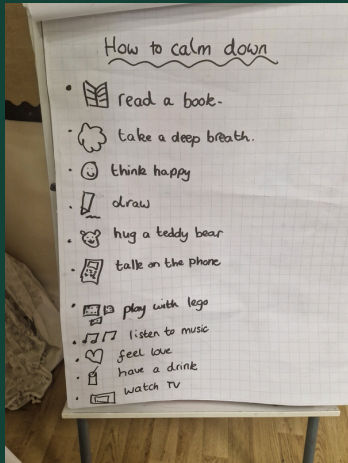 How to calm down
read a book.
take a deep breath.
think happy
draw
hug a teddy bear
talk on the phone
play with lego
listen to music
feel love
have a drink
watch TV